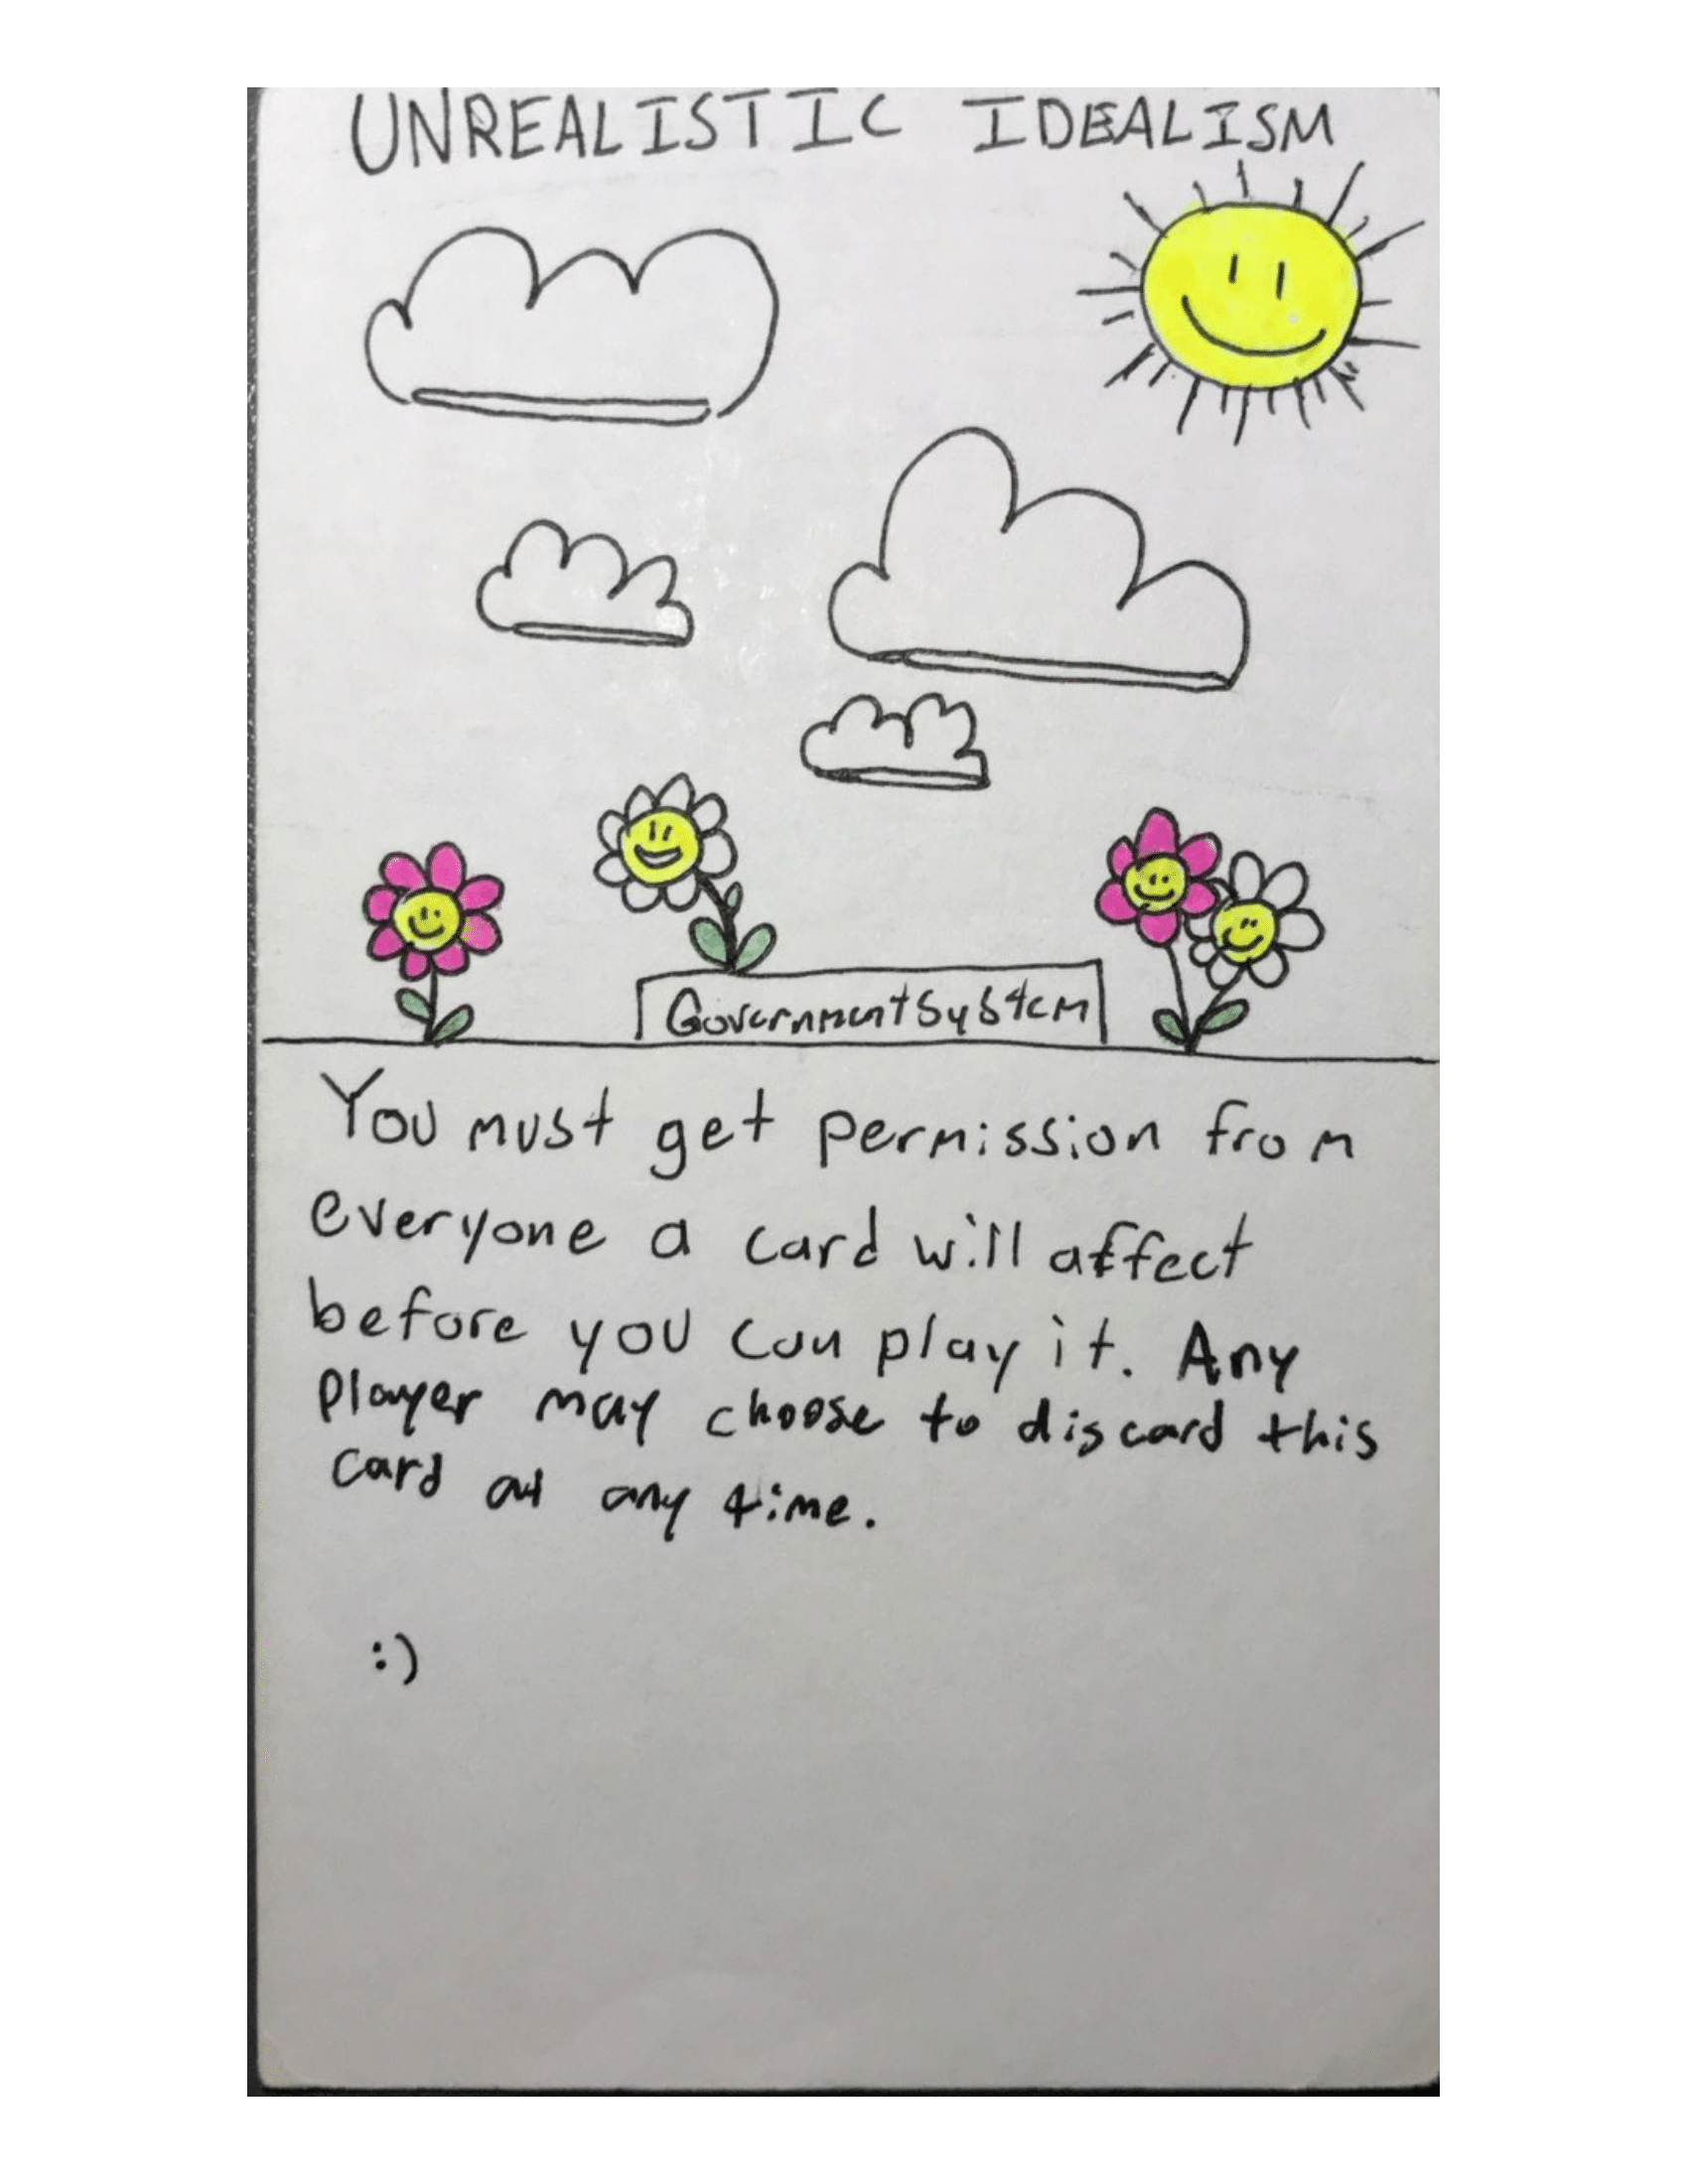 UNREALISTIC IDEALISM
Government System
You must get permission from
everyone a card will affect
before you can play it. Any
player may choose to discard this
card at any time.
:)